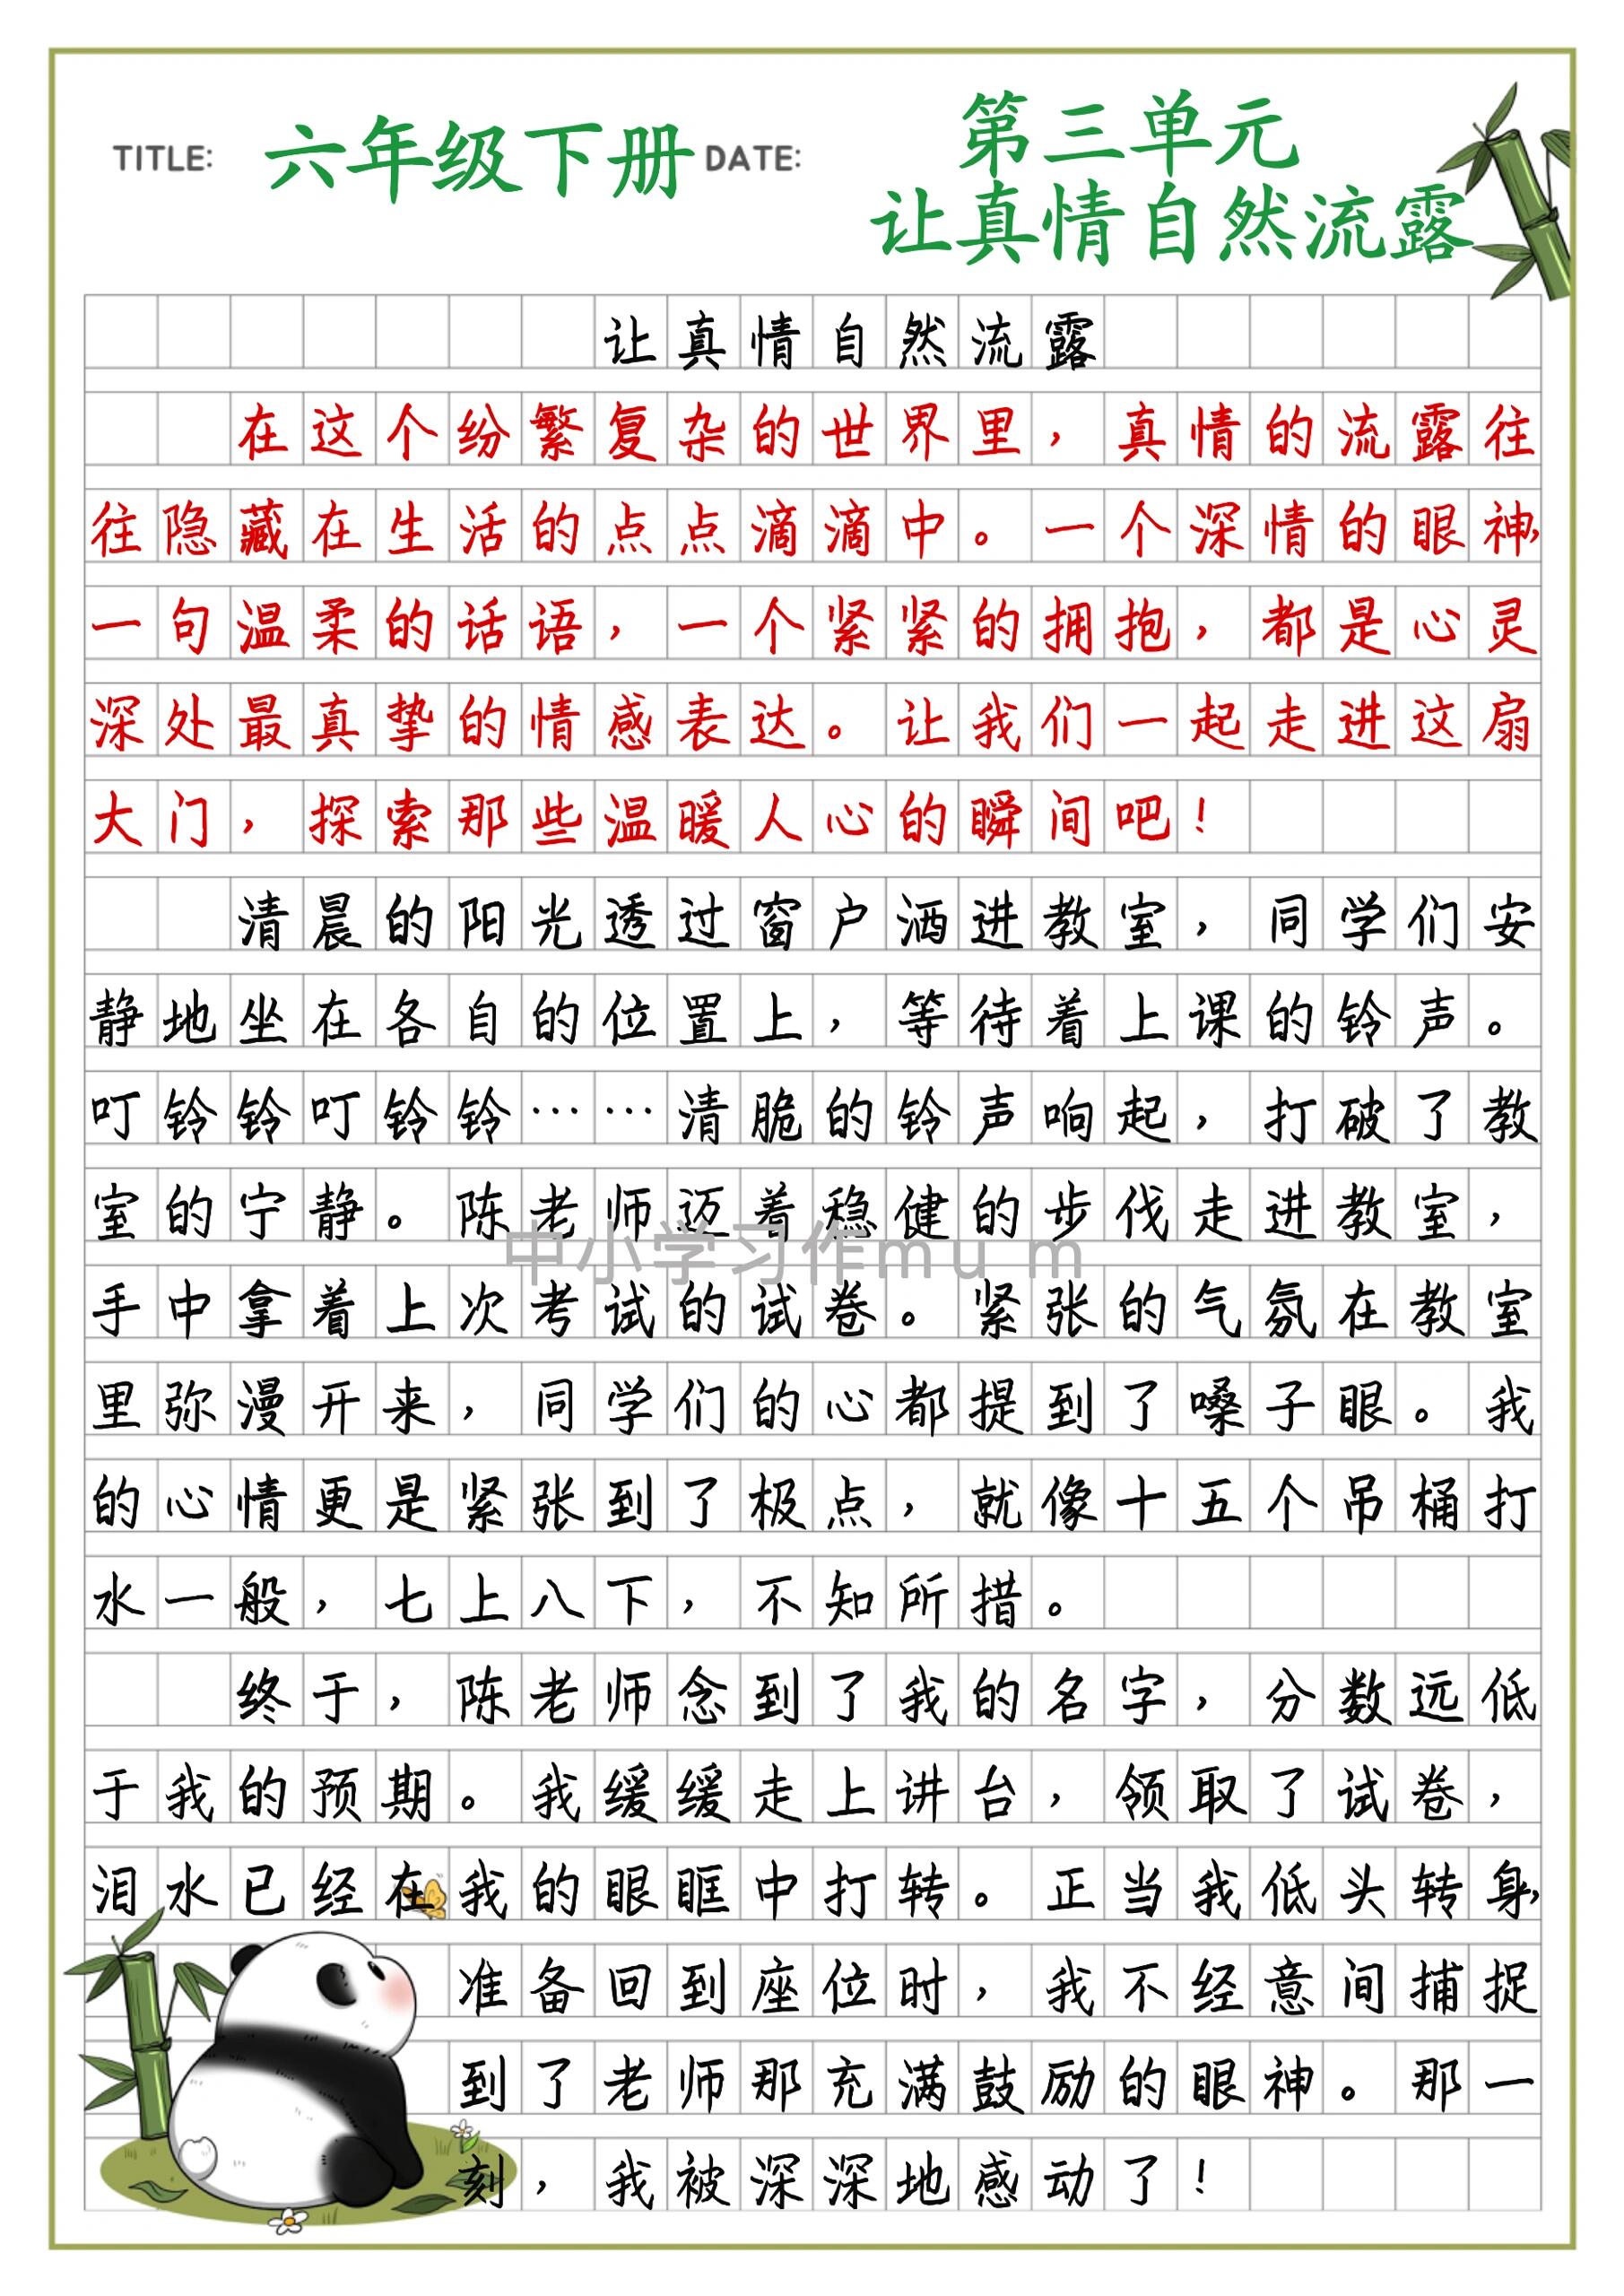 TITLE: 六年级下册 DATE: 第三单元
让真情自然流露
让真情自然流露
在这个纷繁复杂的世界里，真情的流露往
往隐藏在生活的点点滴滴中。一个深情的眼神，
一句温柔的话语，一个紧紧的拥抱，都是心灵
深处最真挚的情感表达。让我们一起走进这扇
大门，探索那些温暖人心的瞬间吧！
清晨的阳光透过窗户洒进教室，同学们安
静地坐在各自的位置上，等待着上课的铃声。
叮铃铃叮铃铃……清脆的铃声响起，打破了教
室的宁静。陈老师迈着稳健的步伐走进教室，
中小学习作mum
手中拿着上次考试的试卷。紧张的气氛在教室
里弥漫开来，同学们的心都提到了嗓子眼。我
的心情更是紧张到了极点，就像十五个吊桶打
水一般，七上八下，不知所措。
终于，陈老师念到了我的名字，分数远低
于我的预期。我缓缓走上讲台，领取了试卷，
泪水已经在我的眼眶中打转。正当我低头转身，
准备回到座位时，我不经意间捕捉
到了老师那充满鼓励的眼神。那一
刻，我被深深地感动了！